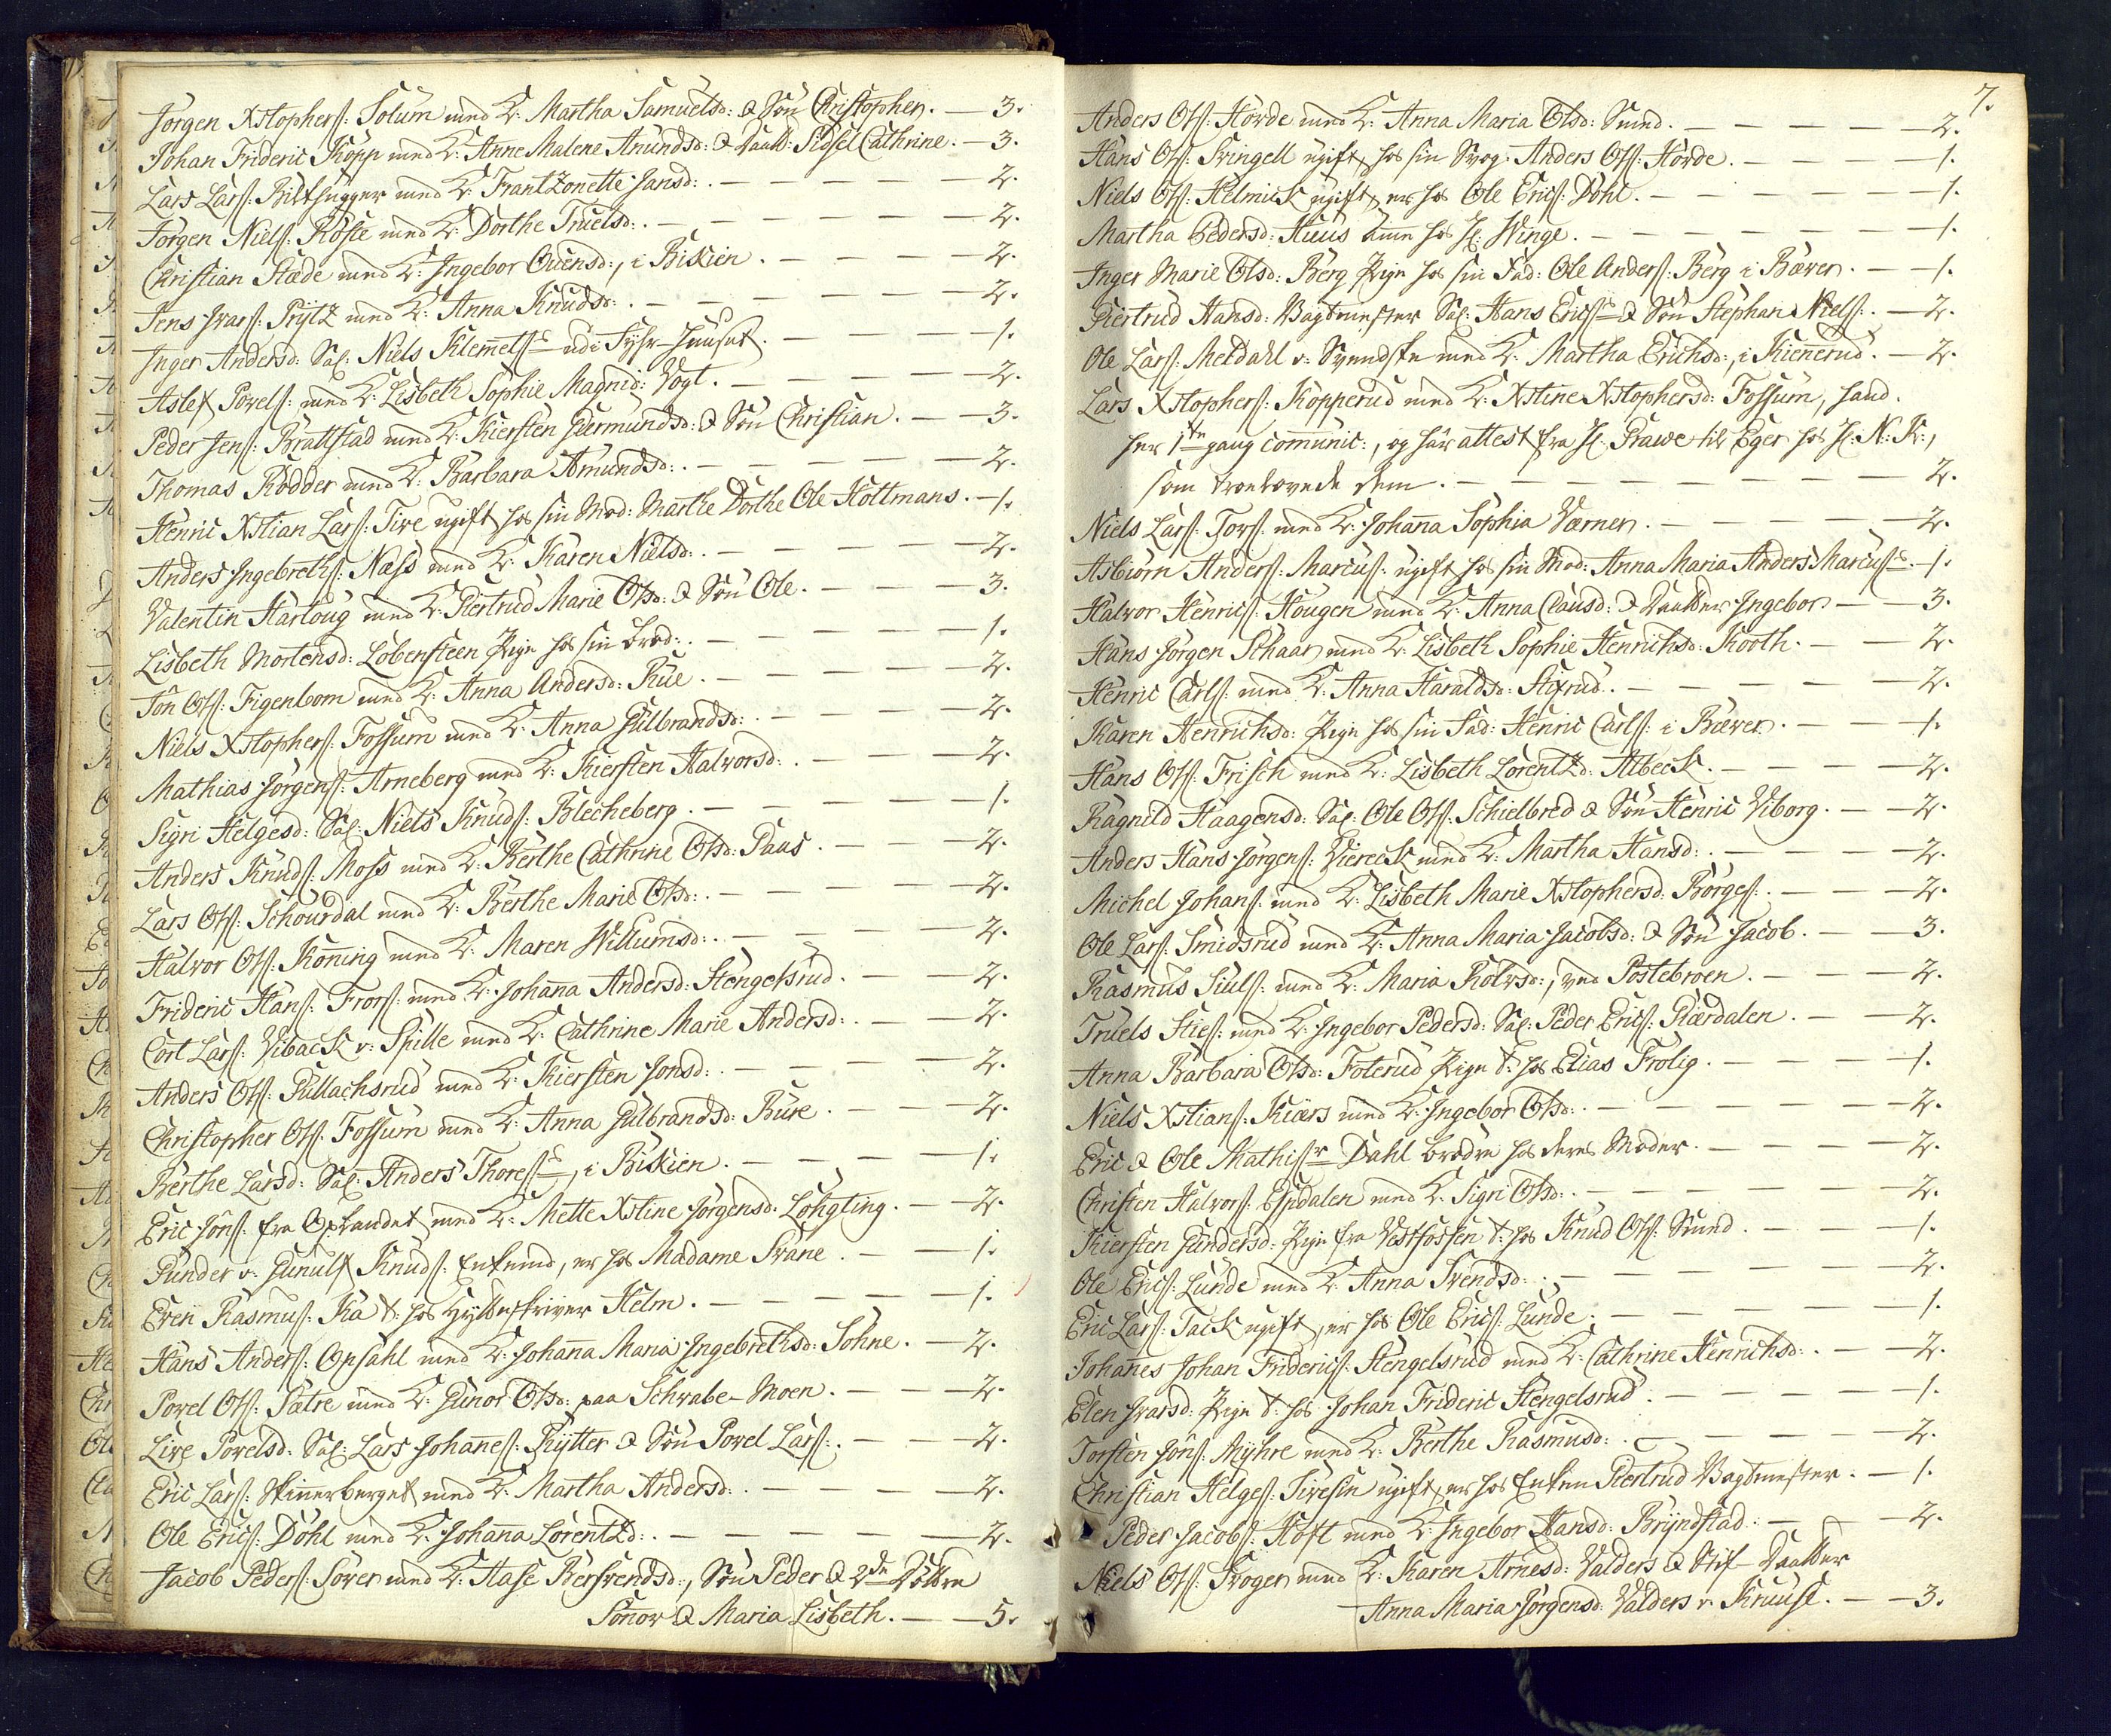 Jørgen Xstophers: Solum med K: Martha Samuelsd: & Søn Christopher. — 3.
Johan Frideric Kopp med K: Anne Malene Amundsd: & Daatt: Sidsel Cathrine. — 3.
Lars Lars: Bilthugger med K: Frantzonette Jansd: . — 2.
Jørgen Niels: Røste med K: Dorthe Truelsd: . — 2.
Christian Stæde med K: Ingebor Ovensd:, i Biskien . — 2.
Jens Ivars: Prytz med K: Anna Knudsd: . — 2.
Inger Andersd: Sal: Niels Klemmets: udi Syhr-Huuset. — 1.
Aslef Povels: med K: Lisbeth Sophie Magnid: Vogt. — 2.
Peder Jens: Brattstad med K: Kiersten Germundsd: & Søn Christian. — 3.
Thomas Rødder med K: Barbara Amundsd: . — 2.
Henric Xstian Lars: Tire ugift hos sin Mod: Marthe Dorthe Ole Holtmans. — 1.
Anders Ingebreths: Næss med K: Karen Nielsd: . — 2.
Valentin Hartoug med K: Giertrud Marie Olsd: & Søn Ole. — 3.
Lisbeth Mortensd: Lobensteen Pige hos sin Brod: . — 1.
Jôn Ols: Figenbom med K: Anna Andersd: Rue. — 2.
Niels Xstophers: Fossum med K: Anna Gulbrandsd: . — 2.
Mathias Jørgens: Arneberg med K: Kiersten Halvorsd: . — 2.
Sigri Helgesd: Sal: Niels Knuds: Blecheberg. — 1.
Anders Knuds: Moss med K: Berthe Cathrine Olsd: Paus. — 2.
Lars Ols: Schourdal med K: Berthe Marie Olsd: . — 2.
Halvor Ols: Kønning med K: Maren Willumsd: . — 2.
Frideric Hans: Frors: med K: Johanna Andersd: Stengelsrud. — 2.
Cort Lars: Vibaek v: Spille med K: Cathrine Marie Andersd: . — 2.
Anders Ols: Gullachsrud med K: Kiersten Jonsd: . — 2.
Christopher Ols: Fossum med K: Anna Gulbrandsd: Bure . — 2.
Berthe Larsd: Sal: Anders Thores:, i Biskien . — 1.
Eric Jôns: fra Oplandet med K: Mette Xstine Jørgensd: Løhgting. — 2.
Gunder v: Gunulf Knuds: Enkemd, er hos Madame Svane . — 1.
Even Rasmus: Kaa t: hos Hytteskriver Helm. — 1.
Hans Anders: Opsahl med K: Johanna Maria Ingebrethsd: Søhne. — 2.
Povel Ols: Sætre med K: Gunor Olsd: paa Schwabe-Moen. — 2.
Live Povelsd: Sal: Lars Johannes: Rytter & Søn Povel Lars: . — 2.
Eric Lars: Skinnerberget med K: Martha Andersd: . — 2.
Ole Erics: Dohl med K: Johana Lorentzd: . — 2.
Jacob Peders: Sover med K: Aase Bersvendsd:, Søn Peder & 2de Døttre
Sonnov & Maria Lisbeth. — 5.
7.
Anders Ols: Hørde med K: Anna Maria Olsd: Smed. — 2.
Hans Ols: Svingell ugift, hos sin Svog: Anders Ols: Hørde. — 1.
Niels Ols: Helmick ugift, er hos Ole Erics: Dohl. — 1.
Martha Pedersd: Huus Amme hos H: Winge. — 1.
Inger Marie Olsd: Berg Pige hos sin Fad: Ole Anders: Berg i Bæver. — 1.
Giertrud Hansd: Vagtmester Sal: Hans Erics: & Søn Stephan Niels: . — 2.
Ole Lars: Meldahl v: Svendske med K: Martha Erichsd:, i Kiennerud. — 2.
Lars Xstophers: Kopperud med K: Xstine Xstophersd: Fossum, hand
her 1te gang communic:, og har attest fra H: Pawe til Eger hos H: N: K:,
som troelovede dem. — 2.
Niels Lars: Tors: med K: Johanna Sophia Værner. — 2.
Asbiørn Anders: Marcus: ugift hos sin Mod: Anna Maria Anders Marcus: — 1.
Halvor Henrics: Hougen med K: Anna Clausd: & Daatter Ingebor. — 3.
Hans Jørgen Schaar med K: Lisbeth Sophie Henrichsd: Kooth. — 2.
Henric Carls: med K: Anna Haraldsd: Stixrud. — 2.
Karen Henrichsd: Pige hos sin Fad: Henric Carls: i Bæver. — 1.
Hans Ols: Frisch med K: Lisbeth Lorentzd: Albeck. — 2.
Ragnild Haagensd: Sal: Ole Ols: Schielbred & Søn Henric Viborg. — 2.
Anders Hans Jørgens: Viereck med K: Martha Hansd: . — 2.
Michel Johans: med K: Lisbeth Marie Xstophersd: Børges: . — 2.
Ole Lars: Smidsrud med K: Anna Maria Jacobsd: & Søn Jacob. — 3.
Rasmus Siuls: med K: Maria Rolvsd:, ved Postebroen. — 2.
Truels Sties: med K: Ingebor Pedersd: Sal: Peder Erics: Kiærdalen. — 2.
Anna Barbara Olsd: Foterud Pige t: hos Elias Frolig. — 1.
Niels Xstians: Kiærs med K: Ingebor Olsd: . — 2.
Eric & Ole Mathisr Dahl Brødre hos deres Moder. — 2.
Christen Halvors: Espdalen med K: Sigri Olsd: . — 2.
Kiersten Gundersd: Pige fra Vestfossen t: hos Knud Ols: Smed. — 1.
Ole Erics: Lunde med K: Anna Svendsd: . — 2.
Eric Lars: Tack ugift, er hos Ole Erics: Lunde. — 1.
Johannes Johan Friderics: Stengelsrud med K: Cathrine Henrichsd: . — 2.
Elen Ivarsd: Pige t: hos Johan Frideric Stengelsrud. — 1.
Torsten Jôns: Myhre med K: Berthe Rasmusd: . — 2.
Christian Helges: Tivesin ugift, er hos Enken Giertrud Vagtmester. — 1.
Peder Jacobs: Hoft med K: Ingebor Hansd: Bryndstad. — 2.
Niels Ols: Froger med K: Karen Arnesd: Valders & Stif-Daatter
Anna Maria Jørgensd: Valders v: Knuuse. — 3.